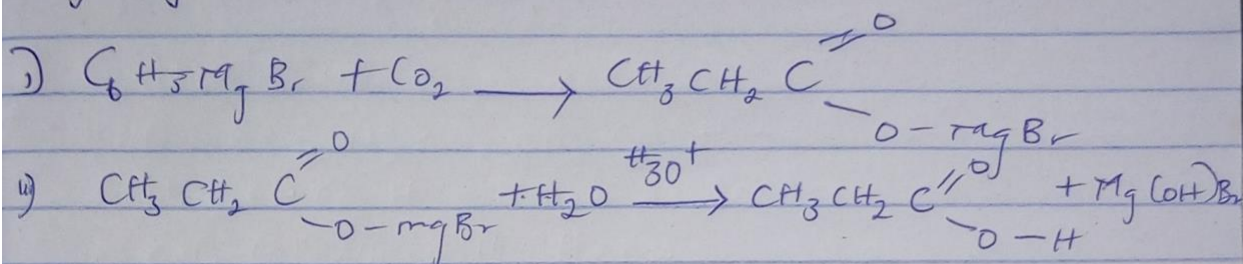 i) C6H5MgBr + CO2 → CH3CH2C(=O)O-MgBr
ii) CH3CH2C(=O)O-mgBr + H2O —H3O+→ CH3CH2C(=O)O-H + Mg(OH)Br